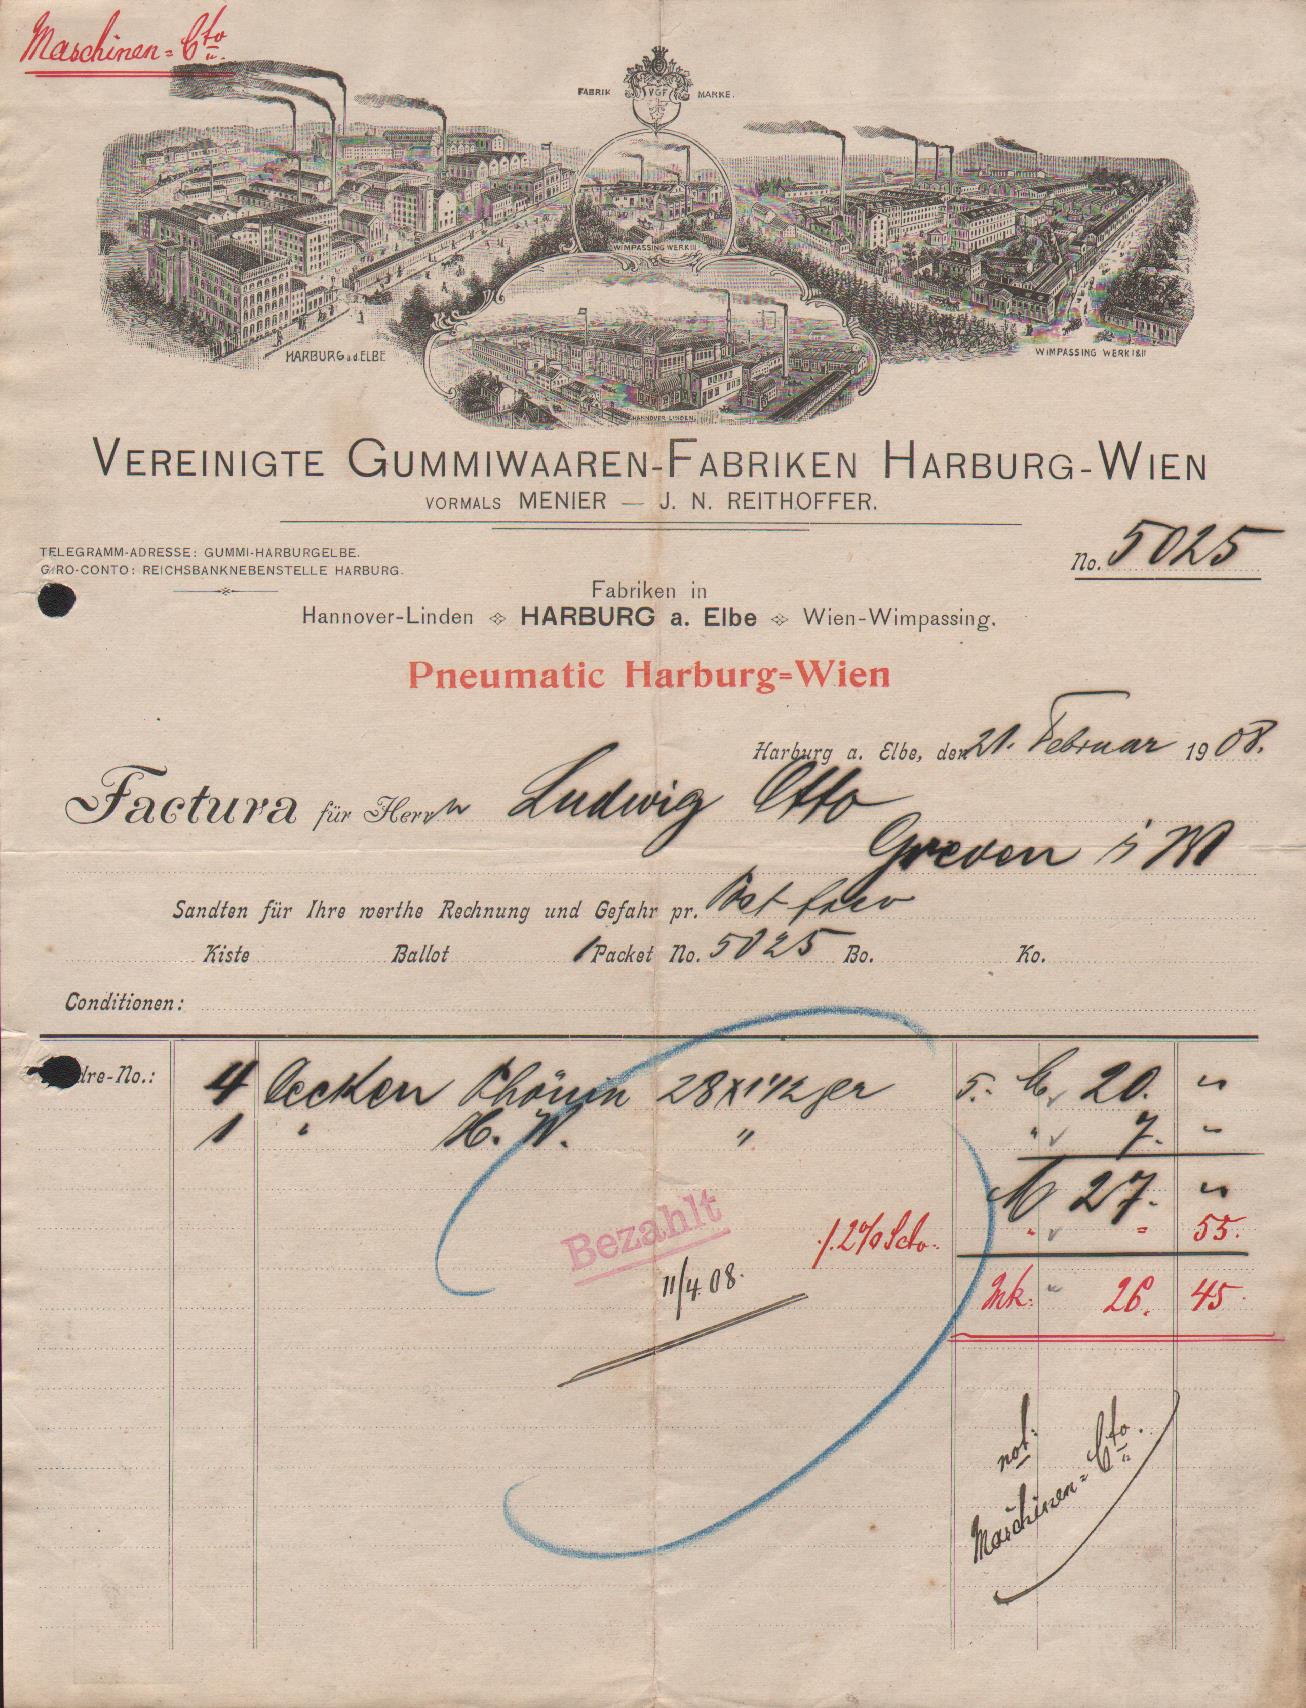 Maschinen=Cto
FABRIK MARKE.
VGF
WIMPASSING WERK III
HARBURG a.d. ELBE
WIMPASSING WERK I&II
HANNOVER-LINDEN.
VEREINIGTE GUMMIWAAREN-FABRIKEN HARBURG-WIEN
VORMALS MENIER — J. N. REITHOFFER.
TELEGRAMM-ADRESSE: GUMMI-HARBURGELBE.
GIRO-CONTO: REICHSBANKNEBENSTELLE HARBURG.
No. 5025
Fabriken in
Hannover-Linden HARBURG a. Elbe Wien-Wimpassing.
Pneumatic Harburg=Wien
Harburg a. Elbe, den 21. Februar 1908.
Factura für Herrn Ludwig Otto
Greven i/W
Sandten für Ihre werthe Rechnung und Gefahr pr. Post fcco
Kiste Ballot 1 Packet No. 5025 Bo. Ko.
Conditionen:
dre-No.: 4 Decken Phönix 28 x 1 1/2 ger 5.- M 20. "
1 " H. W. " " 7. "
M 27. "
Bezahlt ./. 2% Scto. " " 55.
11/4 08. Mk. 26. 45
not:
Maschinen=Cto.